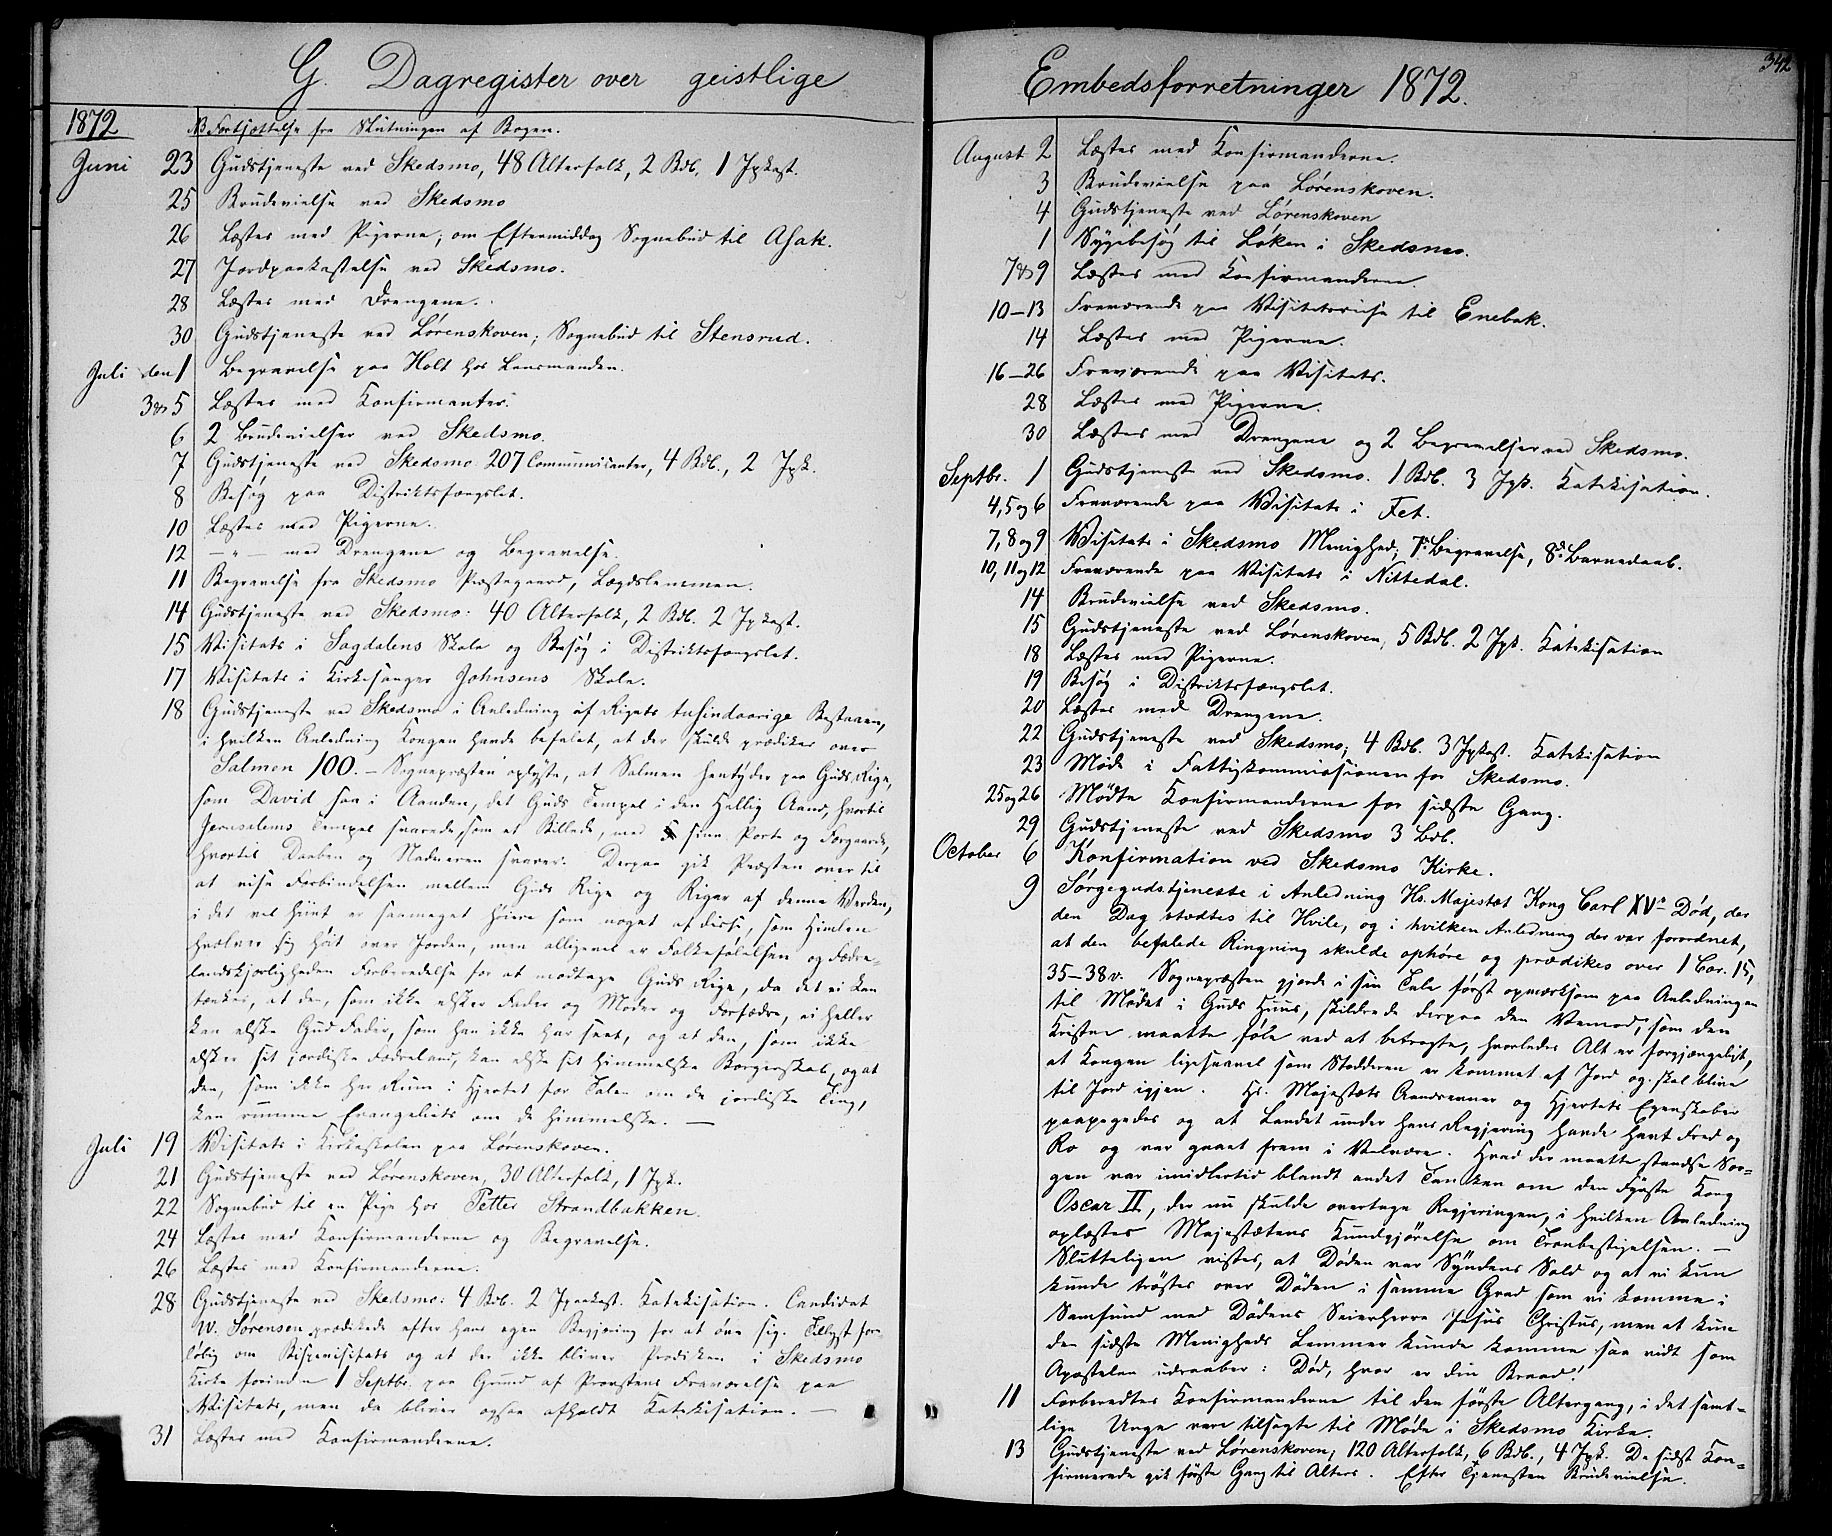 G. Dagregister over geistlige
1872
NB Fortsættelse fra Slutningen af Bogen.
Juni 23 Gudstjeneste ved Skedsmo, 48 Alterfolk, 2 Bdb, 1 Jpkast.
25 Brudevielse ved Skedsmo
26 Læstes med Pigerne; om Eftermiddag Sognebud til Asak.
27 Jordpaakastelse ved Skedsmo.
28 Læstes med Drengene.
30 Gudstjeneste ved Lørenskoven; Sognebud til Stensrud.
Juli den 1 Begravelse paa Holt hos Lensmanden.
3 og 5 Læstes med Konfirmanter.
6 2 Brudevielser ved Skedsmo.
7 Gudstjeneste ved Skedsmo. 207 Communicanter, 4 Bdb., 2 Jpk.
8 Besøg paa Distriktsfængslet.
10 Læstes med Pigerne.
12 — " — med Drengene og Begravelse.
11 Begravelse fra Skedsmo Præstegaard, Lægdslemmen.
14 Gudstjeneste ved Skedsmo: 40 Alterfolk, 2 Bdb. 2 Jpkast.
15 Visitats i Sagdalens Skole og Besøg i Distriktsfængslet.
17 Visitats i Kirkesanger Johnsens Skole.
18 Gudstjeneste ved Skedsmo i Anledning af Rigets tusindaarige Bestaaen,
i hvilken Anledning Kongen havde befalet, at der skulde prædikes over
Salmen 100. — Sognepræsten oplyste, at Salmen hentyder paa Guds Rige,
som David saa i Aanden, det Guds Tempel i den Hellig Aand, hvortil
Jerusalems Tempel svarede, som et Billede, med sine Porte og Forgaarde,
hvortil Daaben og Nadveren svarer. Derpaa gik Præsten over til
at vise Forbindelsen mellem Guds Rige og Riger af denne Verden,
i det vel hiint er saameget høiere som noget af disse, som Himlen
hvælver sig høit over Jorden, men alligevel er Folkefølelsen og Fædre-
landskjærligheden Forberedelse for at modtage Guds Rige, da det ei kan
tænkes, at den, som ikke elsker Fader og Moder og Forfædre, ei heller
kan elske Gud Fader, som han ikke har seet, og at den, som ikke
elsker sit jordiske Fædreland, kan elske sit himmelske Borgerskab, og at
den, som ikke har Rum i Hjertet for Talen om de jordiske Ting,
kan rumme Evangeliets om de himmelske. —
Juli 19 Visitats i Kirkeskolen paa Lørenskoven.
21 Gudstjeneste ved Lørenskoven, 30 Alterfolk, 1 Jpk.
22 Sognebud til en Pige hos Petter Strandbakken.
24 Læstes med Konfirmanderne og Begravelse.
26 Læstes med Konfirmanderne.
28 Gudstjeneste ved Skedsmo: 4 Bdb. 2 Jpaakast. Katekisation. Candidat
W. Sørensen prædikede efter hans egen Begjæring for at øve sig. Tillyst fore-
løbig om Bispevisitats og at der ikke bliver Prædiken i Skedsmo
Kirke forinden 1 Septbr. paa Grund af Provstens Fraværelse paa
Visitats, men da bliver ogsaa afholdt Katekisation. —
31 Læstes med Konfirmanderne.
Embedsforretninger 1872.
342
August 2 Læstes med Konfirmanderne.
3 Brudevielse paa Lørenskoven.
4 Gudstjeneste ved Lørenskoven
1 Sygebesøg til Løken i Skedsmo.
7 og 9 Læstes med Konfirmanderne.
10—13 Fraværende paa Visitatsreise til Enebak.
14 Læstes med Pigerne.
16—26 Fraværende paa Visitats.
28 Læstes med Pigerne.
30 Læstes med Drengene og 2 Begravelser ved Skedsmo.
Septbr. 1 Gudstjeneste ved Skedsmo. 1 Bdb. 3 Jpk. Katekisation.
4, 5 og 6 Fraværende paa Visitats i Fet.
7, 8 og 9 Visitats i Skedsmo Menighed; 7de Begravelse, 8de Barnedaab.
10, 11 og 12 Fraværende paa Visitats i Nittedal.
14 Brudevielse ved Skedsmo.
15 Gudstjeneste ved Lørenskoven, 5 Bdb. 2 Jpk. Katekisation
18 Læstes med Pigerne.
19 Besøg i Distriktsfængslet.
20 Læstes med Drengene.
22 Gudstjeneste ved Skedsmo; 4 Bdb. 3 Jpkast. Katekisation
23 Møde i Fattigkommissionen for Skedsmo.
25 og 26 Mødte Konfirmanderne for sidste Gang.
29 Gudstjeneste ved Skedsmo 3 Bdb.
October 6 Konfirmation ved Skedsmo Kirke.
9 Sørgegudstjeneste i Anledning Hs. Majestæt Kong Carl XVs Død, der
den Dag stædtes til Hvile, og i hvilken Anledning der var forordnet,
at den befalede Ringning skulde ophøre og prædikes over 1 Cor. 15,
35—38 v. Sognepræsten gjorde i sin Tale først opmærksom paa Anledningen
til Mødet i Guds Huus, skildrede derpaa den Vemod, som den
Kristne maatte føle ved at betragte, hvorledes Alt er forgjængeligt,
at Kongen ligesaavel som Stodderen er kommet af Jord og skal blive
til Jord igjen. Hs. Majestæts Aandsevner og Hjertets Egenskaber
paapegedes og at Landet under hans Regjering havde havt Fred og
Ro og var gaaet frem i Velvære. Hvad der maatte standse Sor-
gen var imidlertid blandt andet Tanken om den Fyrste Kong
Oscar II, der nu skulde overtage Regjeringen, i hvilken Anledning
oplæstes Majestætens Kundgjørelse om Tronbestigelsen. —
Slutteligen vistes, at Døden var Syndens Sold og at vi kun
kunde trøstes over Døden i samme Grad som vi komme i
Samfund med Dødens Seierherre Jesus Christus, men at kun
den sidste Menigheds Lemmer kunde komme saa vidt som
Apostelen udraaber: Død, hvor er din Braad!
11 Forberedtes Konfirmanderne til den første Altergang, i det samt-
lige Unge vare tilsagte til Møde i Skedsmo Kirke.
13 Gudstjeneste ved Lørenskoven; 120 Alterfolk, 6 Bdb., 4 Jpk. De sidst Kon-
firmerede gik første Gang til Alters. Efter Tjenesten Brudevielse.